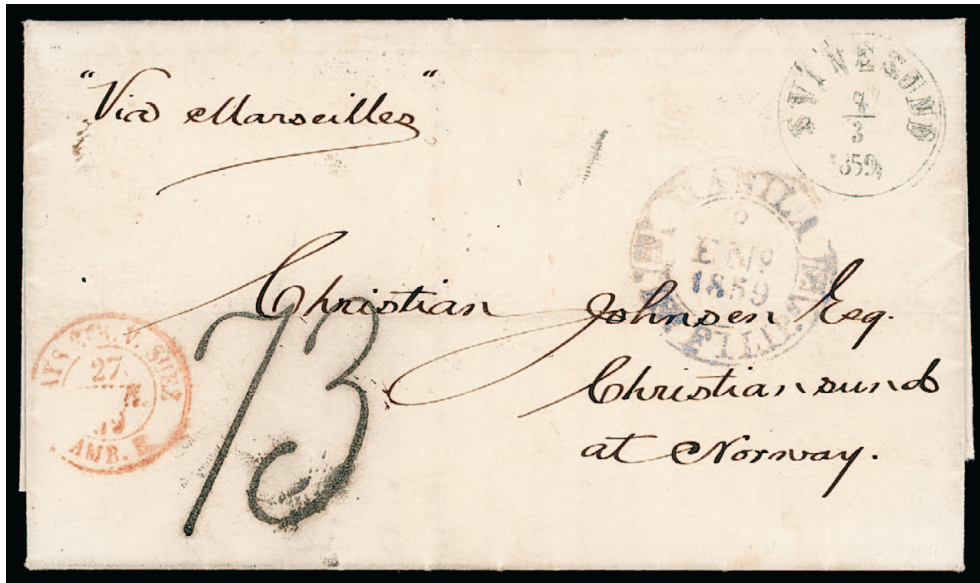 "Via Marseilles"
SVINESUND
3
1859
MANILA
ENº
1859
Christian Johnsen Esq.
Christiansund
at Norway.
73
SUEZ
27
AMB.